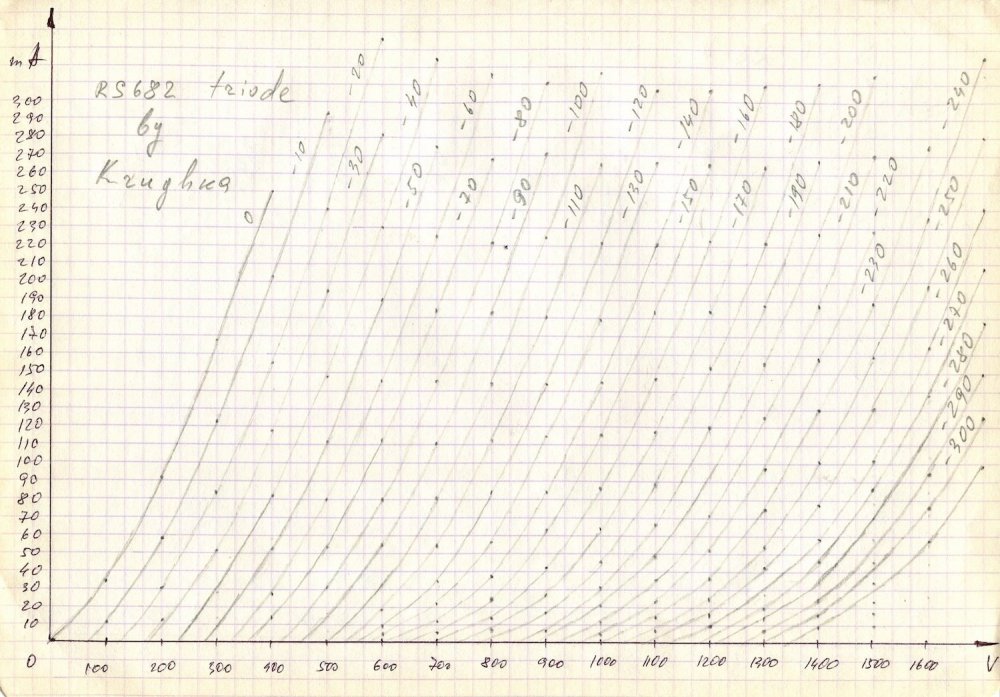 mA
RS682 triode
by
Kzughka
300
290
280
270
260
250
240
230
220
210
200
190
180
170
160
150
140
130
120
110
100
90
80
70
60
50
40
30
20
10
0
0
-10
-20
-30
-40
-50
-60
-70
-80
-90
-100
-110
-120
-130
-140
-150
-160
-170
-180
-190
-200
-210
-220
-230
-240
-250
-260
-270
-280
-290
-300
100 200 300 400 500 600 700 800 900 1000 1100 1200 1300 1400 1500 1600 V